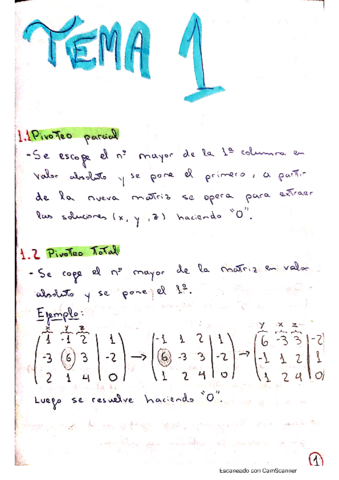 TEMA 1
1.1 Pivoteo parcial
- Se escoge el nº mayor de la 1ª columna en
valor absoluto y se pone el primero, a partir
de la nueva matriz se opera para extraer
las soluciones (x, y, z) haciendo "0".
1.2 Pivoteo Total
- Se coge el nº mayor de la matriz en valor
absoluto y se pone el 1º.
Ejemplo:
x y z y x z
( 1 -1 2 | 1 ) ( -1 1 2 | 1 ) ( 6 -3 3 | -2 )
( -3 6 3 | -2 ) → ( 6 -3 3 | -2 ) → ( -1 1 2 | 1 )
( 2 1 4 | 0 ) ( 1 2 4 | 0 ) ( 1 2 4 | 0 )
Luego se resuelve haciendo "0".
1
Escaneado con CamScanner